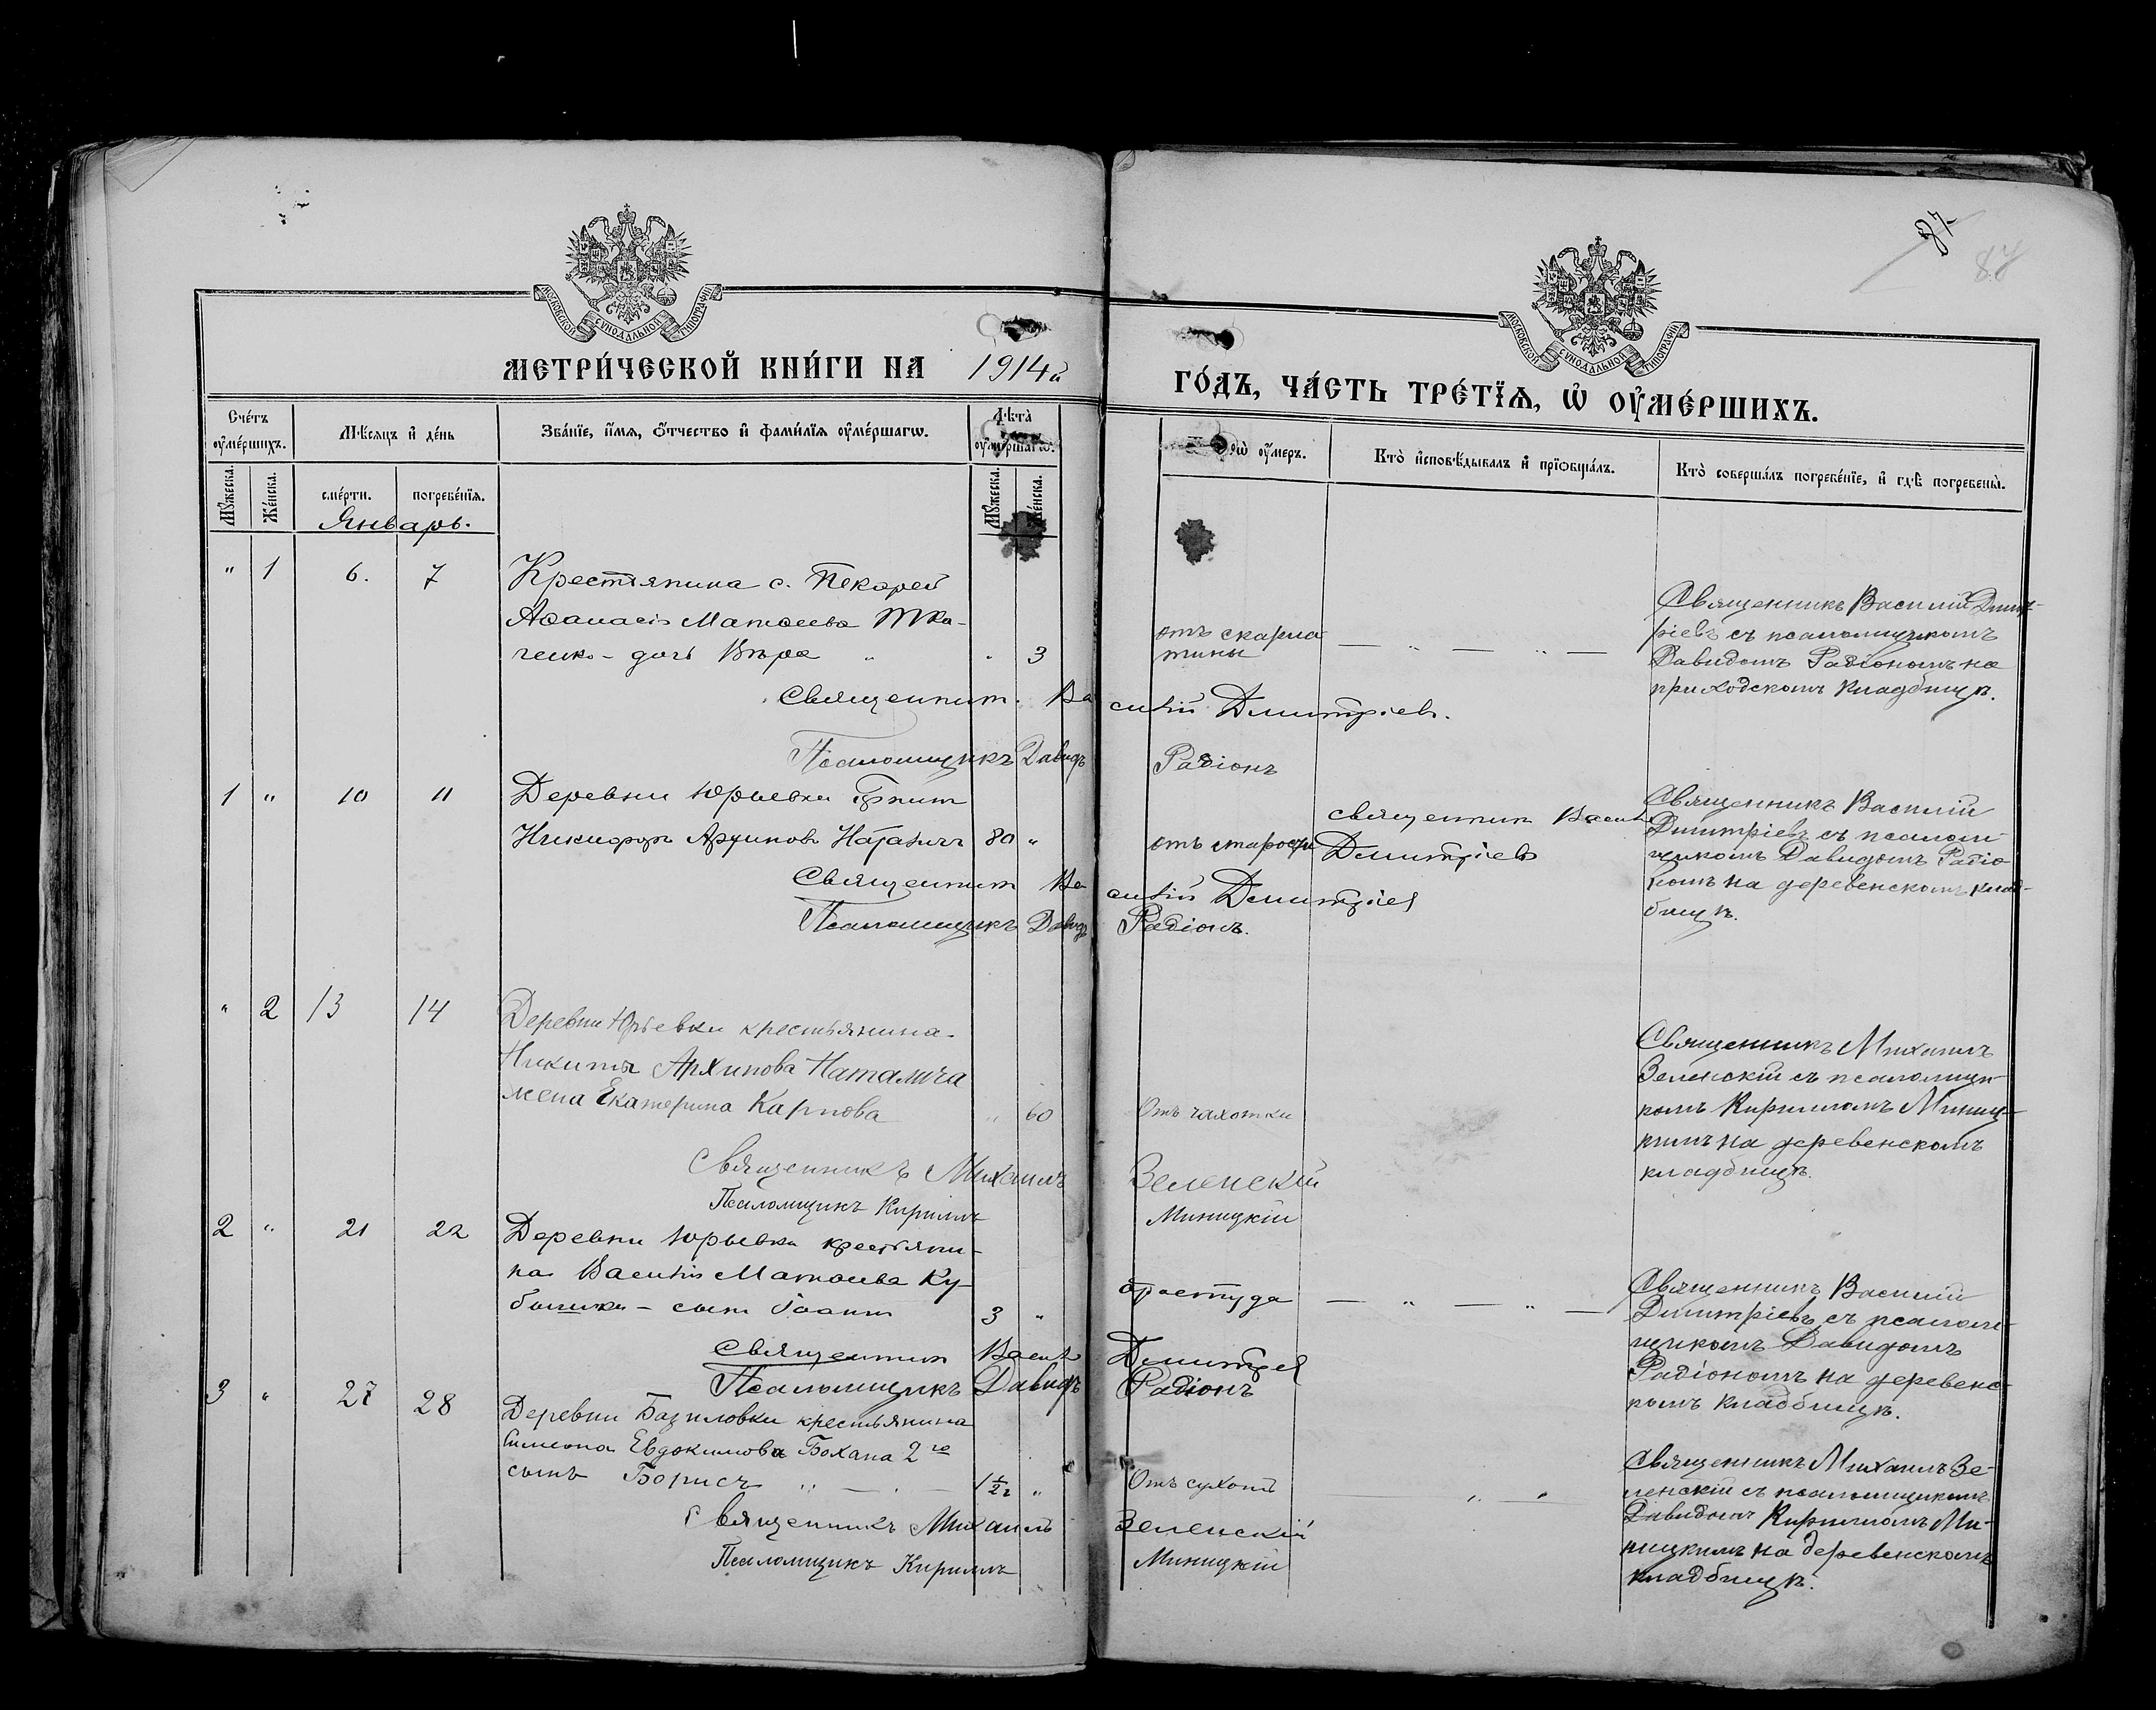 87
87
МЕТРИ́ЧЕСКОЙ КНИ́ГИ НА 1914й
ГО́ДЪ, ЧА́СТЬ ТРЕ́ТЇѦ, Ѽ ОУ҆МЕ́РШИХЪ.
МОСКОВСКОЙ СѴНОДАЛЬНОЙ ТИПОГРАФІИ
МОСКОВСКОЙ СѴНОДАЛЬНОЙ ТИПОГРАФІИ
Сче́тъ оу҆ме́ршихъ.
Мѣ́сѧцъ и҆ де́нь
Зва́нїе, и҆́мѧ, ѻ҆́тчество и҆ фами́лїѧ оу҆ме́ршагѡ.
Лѣ́та оу҆ме́ршагѡ.
оу҆́меръ.
Кто̀ и҆сповѣ́дывалъ и҆ прїѡбща́лъ.
Кто̀ соверша́лъ погребе́нїе, и҆ гдѣ̀ погребены̀.
Мꙋ́жеска.
Же́нска.
сме́рти.
погребе́нїѧ.
Мꙋ́жеска.
Же́нска.
Январь.
" 1 6. 7 Крестьянина с. Пекарей
Аѳанасія Матѳеева Тка-
ченко - дочь Вѣра " " 3
отъ скарла
тины
— " — " —
Священникъ Василій Димит-
ріевъ съ псаломщикомъ
Давидомъ Радіономъ на
приходскомъ кладбищѣ.
Священник Василій Димитріев.
Псаломщикъ Давидъ Радіонъ
1 " 10 11 Деревни Юрьевки
Никифоръ Архипов 80 "
отъ старости
священник Василій
Димитріевъ
Священникъ Василій
Димитріевъ съ псалом-
щикомъ Давидомъ Радіо-
номъ на деревенскомъ клад-
бищѣ.
Священник Василій Димитріев
Псаломщикъ Давидъ Радіонъ.
" 2 13 14 Деревни Юрьевки крестьянина
Никиты Архипова Наталича
жена Екатерина Карпова " 60
Отъ чахотки
Священникъ Михаилъ
Зеленскій съ псаломщи-
комъ Кирилломъ Миниц-
кимъ на деревенскомъ
кладбищѣ.
Священникъ Михаилъ Зеленскій
Псаломщикъ Кириллъ Миницкій
2 " 21 22 Деревни Юрьевки крестьяни-
на Василія Матѳеева Ку-
- сын Іоанн 3 "
простуда
— " — " —
Священникъ Василій
Димитріевъ съ псалом-
щикомъ Давидомъ
Радіономъ на деревенс-
комъ кладбищѣ.
Священник Василій Димитріев
Псаломщикъ Давидъ Радіонъ
3 " 27 28 Деревни Базиловки крестьянина
Симеона Евдокимова Бохана 2го
сынъ Борисъ 1½ "
Отъ сухотъ
Священникъ Михаилъ Зе-
ленскій съ псаломщикомъ
Давидомъ Кирилломъ Ми-
ницкимъ на деревенскомъ
кладбищѣ.
Священникъ Михаилъ Зеленскій
Псаломщикъ Кириллъ Миницкій